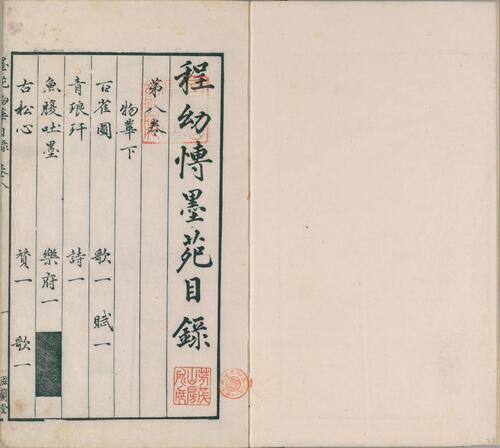 程幼愽墨苑目錄
第八卷
物華下
百雀圖 歌一 賦一
青琅玕 詩一
魚腹吐墨 樂府一
古松心 贊一 歌一
墨苑 物華目錄 卷八 一 滋蘭堂